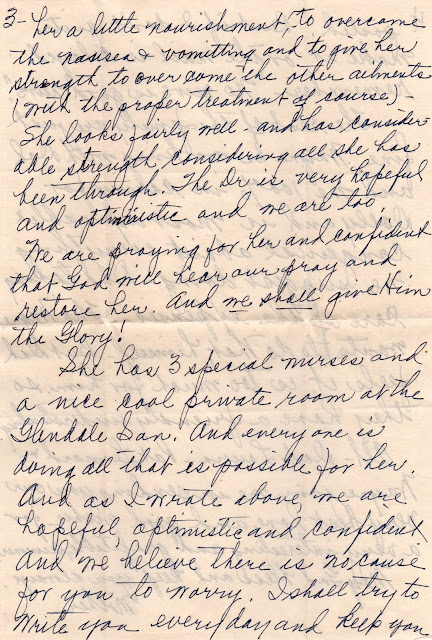 3- her a little nourishment, to overcome
the nausea & vomitting and to give her
strength to over come the other ailments
(with the proper treatment of course)-
She looks fairly well - and has consider-
able strength considering all she has
been through. The Dr is very hopeful
and optimistic and we are too,
We are praying for her and confident
that God will hear our pray and
restore her. And we shall give Him
the Glory!
She has 3 special nurses and
a nice cool private room at the
Glendale San. And everyone is
doing all that is possible for her.
And as I wrote above, we are
hopeful, optimistic and confident
And we believe there is no cause
for you to worry. I shall try to
write you every day and keep you